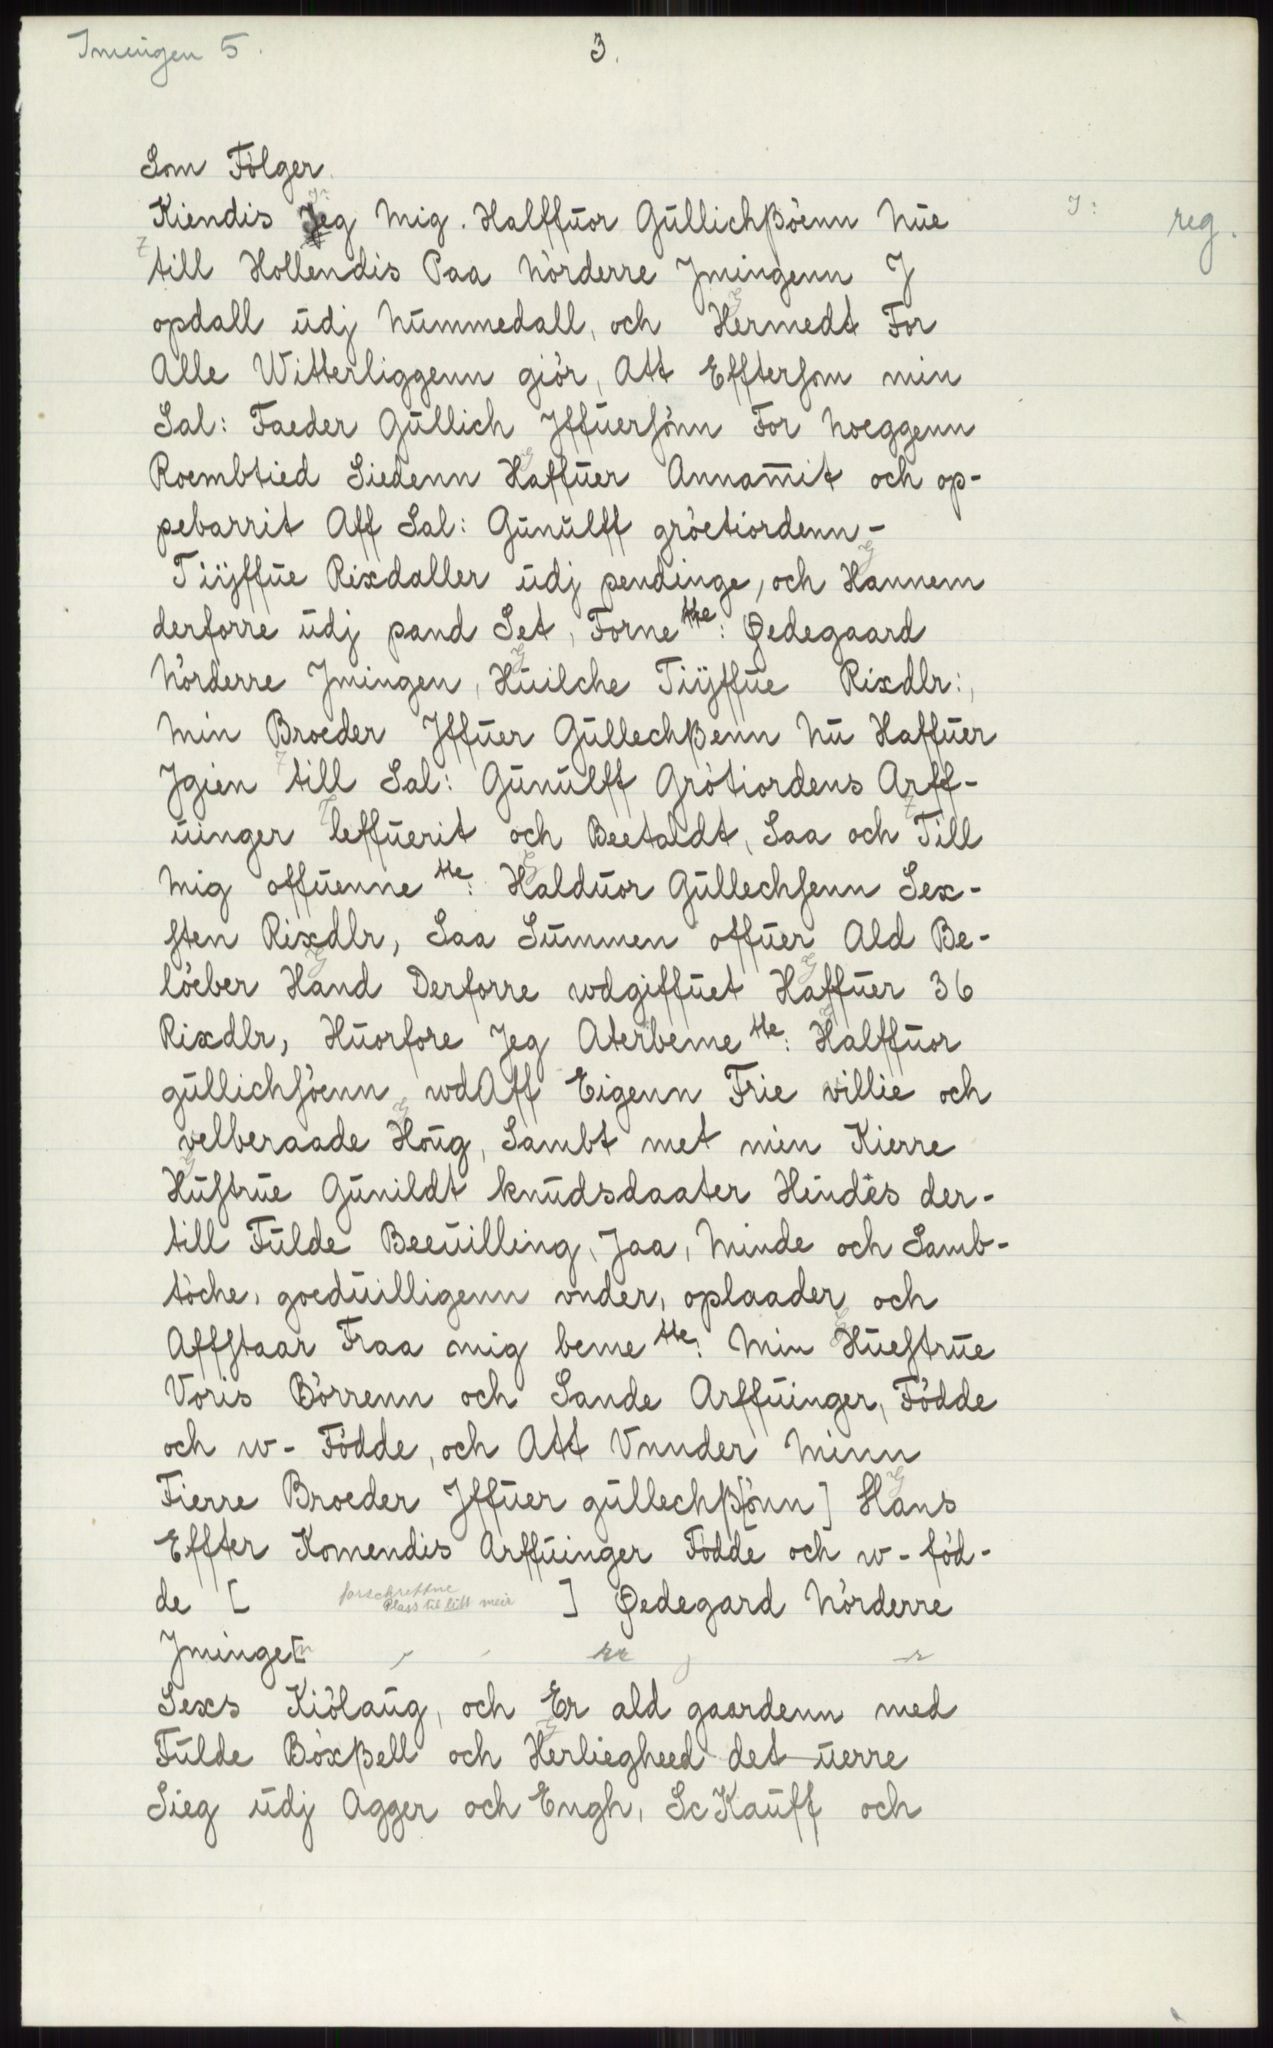 Imingen 5.
3.
Som Fölger.
Kiendis Jeg Mig. Halffuor Gŭllichßöenn Nŭe
J: reg.
till Hollendis Paa Nörderre Jmingenn J
opdall ŭdj Nŭmmedall, och Hermedt For
Alle Witterliggenn giör, Att Efftersom min
Sal: Faeder Gŭllich Jffŭersönn For Noeggenn
Roembtied Siedenn Haffŭer Annam̅it och op-
pebarrit Aff Sal: Gŭnŭlff gröetiordenn -
Tiÿffŭe Rixdaller ŭdj pendinge, och Hannem
derforre ŭdj pand Set, Forne tte: Ødegaard
Nörderre Jmingen, Hŭilche Tiÿffŭe Rixdlr:,
Min Broeder Jffŭer Gŭllechßenn Nŭ Haffŭer
Jgien till Sal: Gŭnŭlff Grötiordens Arff-
ŭinger leffŭerit och Beetaldt, Saa och Till
Mig offŭenne tte: Haldŭor Gŭllechsenn Sex-
sten Rixdlr, Saa Sŭmmen offŭer Ald Be-
löeber Hand Derforre wdgiffŭet Haffŭer 36
Rixdlr, Hŭorfore Jeg Aterbeme tte: Halffŭor
gŭllichsöenn wdAff Eigenn Frie villie och
velberaade Hoŭg, Sambt met min Kierre
Hŭstrŭe Gŭnildt knŭdsdaater Hindes der-
till Fŭlde Beeŭilling, Jaa, Minde och Samb-
töche, goedŭilligenn vnder, oplaader och
Affstaar Fraa mig beme tte: Min Hŭestrŭe
Voris Börrenn och Sande Arffŭinger, Födde
och w- Födde, och Att Vnnder Minn
Fierre Broeder Jffŭer gŭllechß[önn] Hans
Effter Komendis Arffŭinger Födde och w- föd-
de [ forschreffne
Plass til litt meir ] Øedegard Nörderre
Jminge[n
Sexs Kiölaŭg, och Er ald gaardenn med
Fŭlde Böxßell och Herliegheed det ŭerre
Sieg ŭdj Agger och Engh, ScKaŭff och